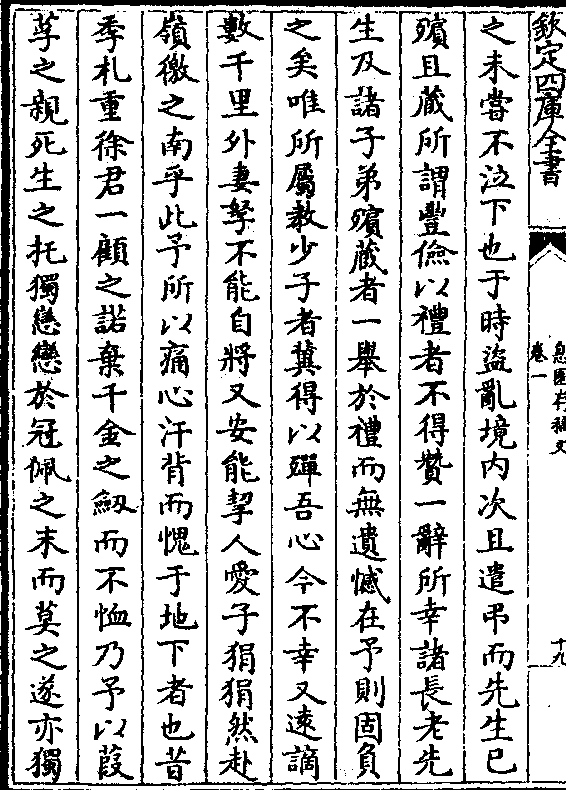 欽定四庫全書
息園存稿文
卷一
十九
之未嘗不泣下也于時盜亂境內次且遣弔而先生已
殯且葳所謂豐儉以禮者不得贊一辭所幸諸長老先
生及諸子弟殯葳者一舉於禮而無遺憾在予則固負
之矣唯所屬教少子者冀得以殫吾心今不幸又遠謫
數千里外妻孥不能自將又安能挈人愛子狷狷然赴
嶺徼之南乎此予所以痛心汗背而愧于地下者也昔
季札重徐君一顧之諾棄千金之劔而不恤乃予以葭
莩之親死生之托獨戀戀於冠佩之末而莫之遂亦獨